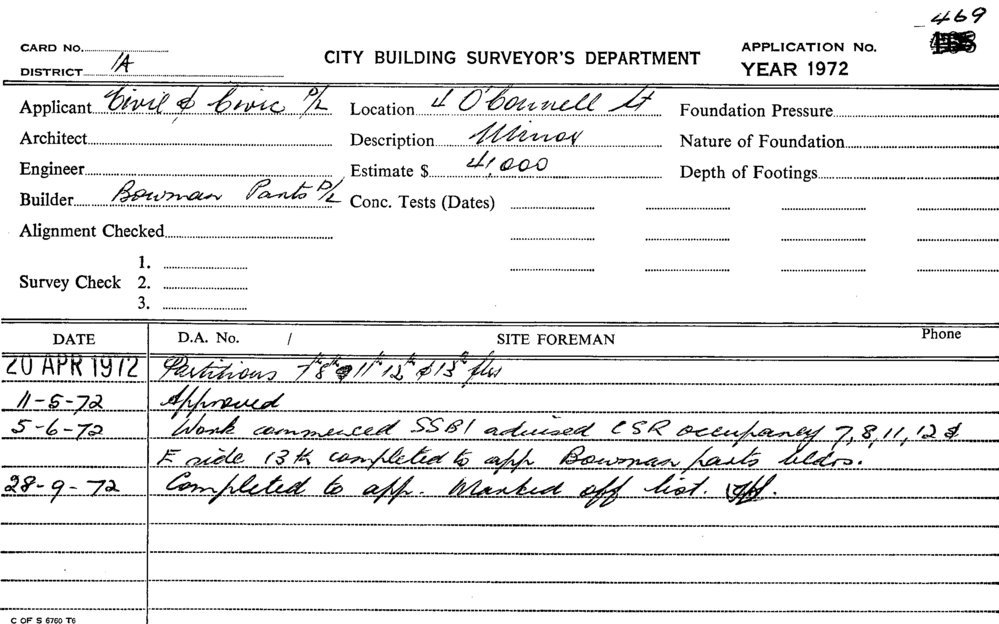 469
CARD No.
DISTRICT 1A
CITY BUILDING SURVEYOR'S DEPARTMENT
APPLICATION No.
YEAR 1972
Applicant Civil & Civic P/L
Location 4 O'Connell St
Foundation Pressure
Architect
Description Minor
Nature of Foundation
Engineer
Estimate $ 41,000
Depth of Footings
Builder Bowman Parts P/L
Conc. Tests (Dates)
Alignment Checked
Survey Check
1.
2.
3.
DATE D.A. No. / SITE FOREMAN Phone
20 APR 1972 Partitions 7th 8th 11th 12th & 13th flrs
11-5-72 Approved
5-6-72 Work commenced SSB1 advised CSR occupancy 7, 8, 11, 12 &
E side 13th completed to app Bowman parts bldrs.
28-9-72 Completed to app. Marked off list.
C OF S 6760 T6